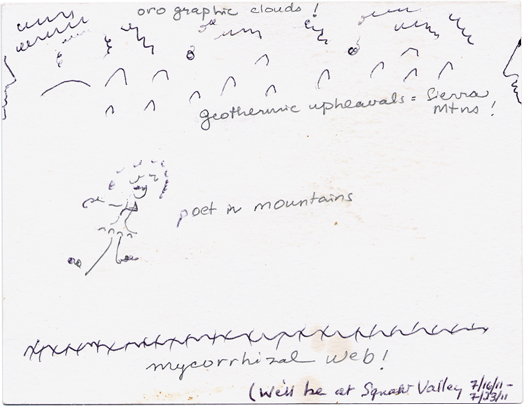 oro graphic clouds !
geothermic upheavals = Sierra
Mtns !
poet in mountains
mycorrhizal web !
(We'll be at Squaw Valley 7/16/11-
7/23/11